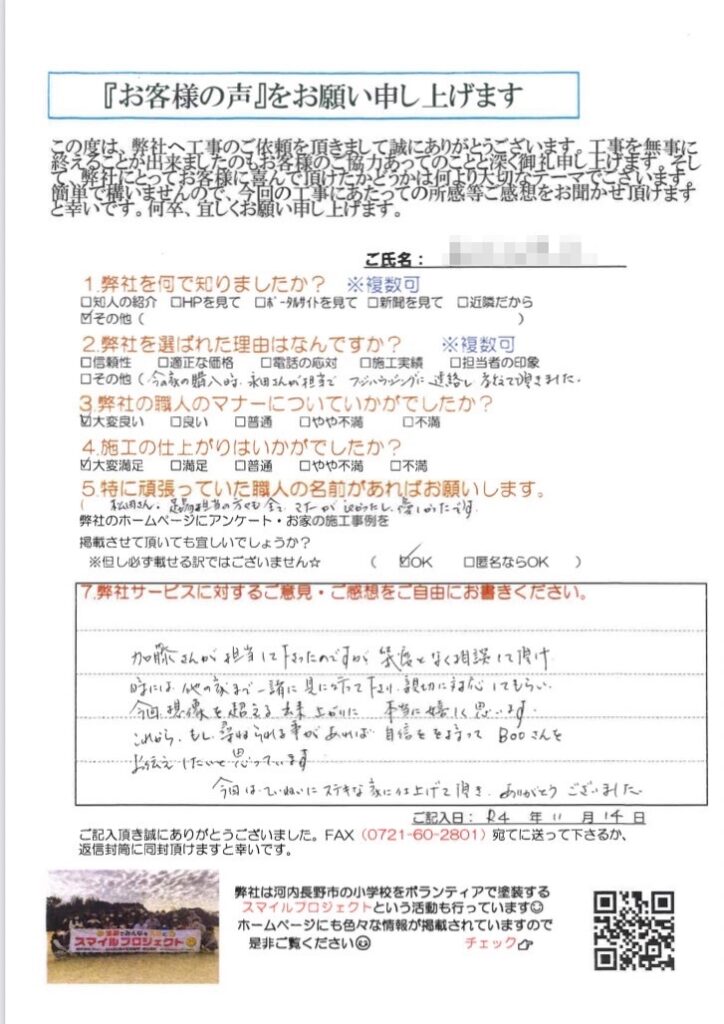 『お客様の声』をお願い申し上げます
この度は、弊社へ工事のご依頼を頂きまして誠にありがとうございます。工事を無事に
終えることが出来ましたのもお客様のご協力あってのことと深く御礼申し上げます。そし
て、弊社にとってお客様に喜んで頂けたかどうかは何より大切なテーマでございます。
簡単で構いませんので、今回の工事にあたっての所感等ご感想をお聞かせ頂けます
と幸いです。何卒、宜しくお願い申し上げます。
ご氏名：
1.弊社を何で知りましたか？ ※複数可
□知人の紹介 □HPを見て □ポータルサイトを見て □新聞を見て □近隣だから
☑その他（ ）
2.弊社を選ばれた理由はなんですか？ ※複数可
□信頼性 □適正な価格 □電話の応対 □施工実績 □担当者の印象
□その他（今の家の購入時、永田さんが担当で フジハウジングに連絡し 教えて頂きました。
3.弊社の職人のマナーについていかがでしたか？
☑大変良い □良い □普通 □やや不満 □不満
4.施工の仕上がりはいかがでしたか？
☑大変満足 □満足 □普通 □やや不満 □不満
5.特に頑張っていた職人の名前があればお願いします。
（ 松田さん、足場担当の方も全て マナーが
弊社のホームページにアンケート・お家の施工事例を
掲載させて頂いても宜しいでしょうか？
※但し必ず載せる訳ではございません☆ （ ☑OK □匿名ならOK ）
7.弊社サービスに対するご意見・ご感想をご自由にお書きください。
加藤さんが担当して下さったのですが 幾度となく相談して頂け
時には他の家まで一緒に見に行って下さり、親切に対応してもらい
今回想像を超える出来上がりに 本当に嬉しく思います。
これから、もし尋ねられる事があれば 自信をを持って Booさんを
お伝えしたいと思っています
今回は、ていねいにステキな家に仕上げて頂き、ありがとうございました。
ご記入日：R4 年 11 月 14 日
ご記入頂き誠にありがとうございました。FAX（0721-60-2801）宛てに送って下さるか、
返信封筒に同封頂けますと幸いです。
スマイルプロジェクト
弊社は河内長野市の小学校をボランティアで塗装する
スマイルプロジェクトという活動も行っています☺
ホームページにも色々な情報が掲載されていますので
是非ご覧ください☺ チェック☞